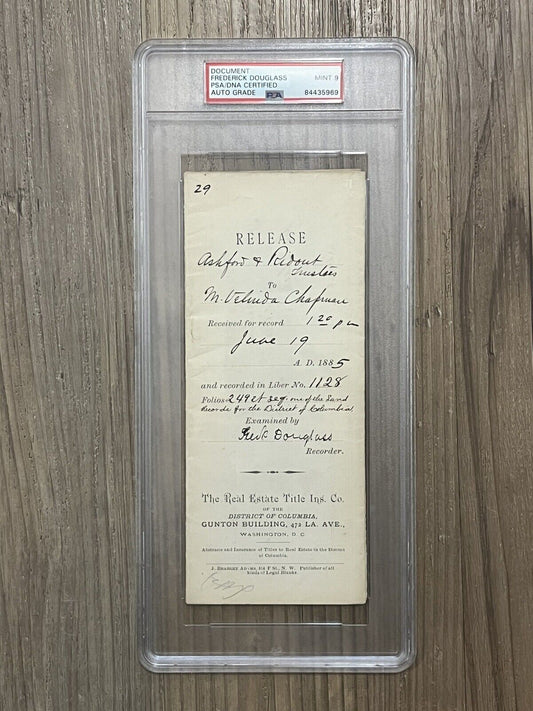 DOCUMENT
FREDERICK DOUGLASS MINT 9
PSA/DNA CERTIFIED
AUTO GRADE PSA 84435969
29
RELEASE
Ashford & Ridout
Trustees
To
M. Velinda Chapman
Received for record 1 20 pm
June 19
A. D. 1885
and recorded in Liber No. 1128
Folios 249 et seq. one of the Land
Records for the District of Columbia
Examined by
Fredk Douglass
Recorder.
The Real Estate Title Ins. Co.
OF THE
DISTRICT OF COLUMBIA,
GUNTON BUILDING, 472 LA. AVE.,
WASHINGTON, D. C
Abstracts and Insurance of Titles to Real Estate in the District
of Columbia.
J. BRADLEY ADAMS, F St., N. W. Publisher of all
kinds of Legal Blanks